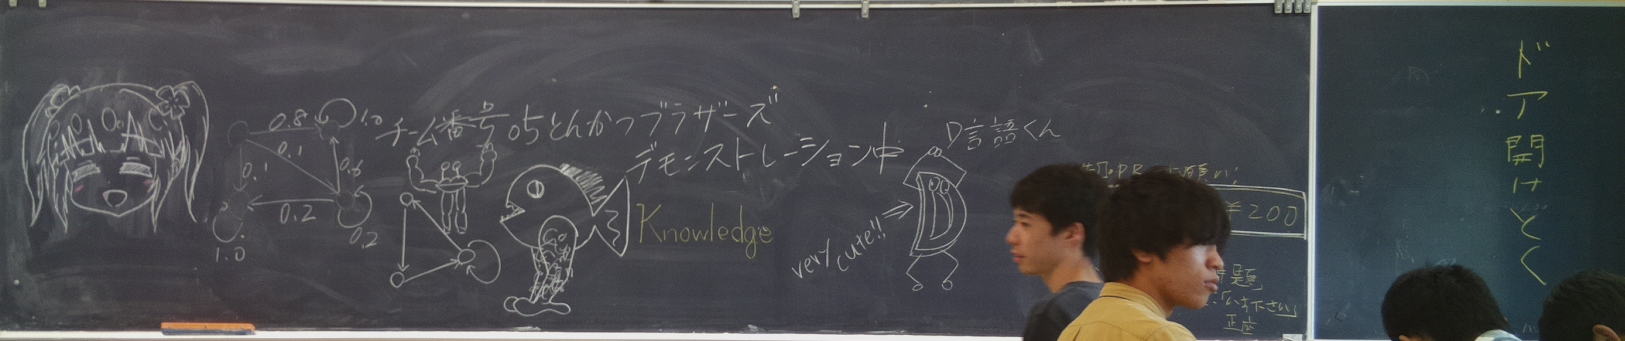 0.8
1.0
0.1
0.1
0.6
0.2
0.2
1.0
チーム番号05とんかつブラザーズ
デモンストレーション中
Knowledge
D言語くん
very cute!!
¥200
題
下さい」
正座
ドア開けとく